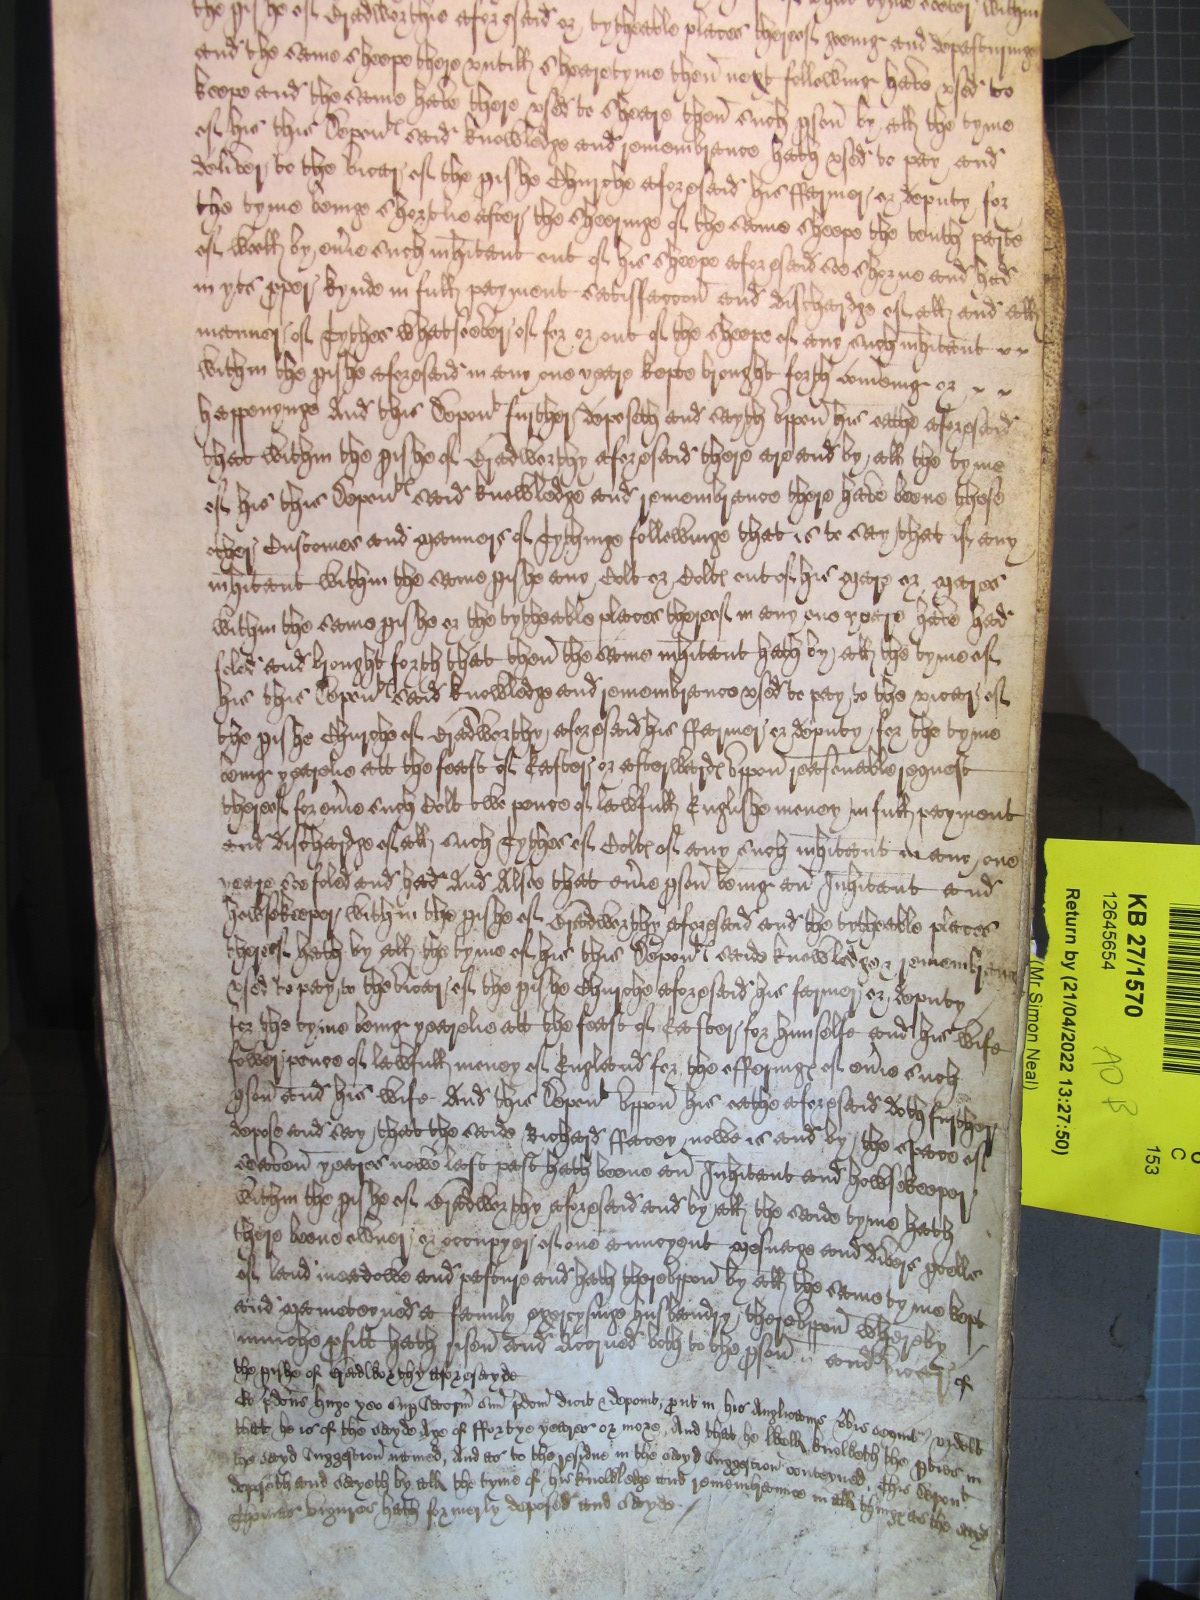 the pishe of Bradworthie aforesaid or tytheable places thereof going and depasturinge
and the same sheepe there untill sheartyme then next following have used to
keepe and the same have there used to sheare then such pson by all the tyme
of his this Depont said knowledge and remembrance hath used to pay and
deliver to the vicar of the pishe Churche aforesaid his ffarmer or deputy for
the tyme beinge shortlie after the sheeringe of the same sheepe the tenth parte
of wooll by everie such inhitant out of his sheepe aforesaid soe shorne and had
in yts pper kynde in full payment satisfaccon and dischardge of all and all
manner of Tythes whatsoever of for or out of the sheepe of any such inhitant
within the pishe aforesaid in any one yeare kepte brought forth cominge or
happenynge And this Depont further deposeth and sayth uppon his oathe aforesaid
that within the pishe of Bradworthy aforesaid there are and by all the tyme
of his this Deponts said knowledge and remembrance there have beene these
other Customes and manners of Tythinge followinge that is to say that if any
inhitant within the same pishe any Colt or Colts out of his mare or mares
within the same pishe or the tytheable places thereof in any one yeare have had
foled and brought forth that then the same inhitant hath by all the tyme of
his this Deponts said knowledge and remembrance used to pay to the vicar of
the pishe Churche of Bradworthy aforesaid his ffarmer or deputy for the tyme
being yearelie att the feast of Easter or afterwards uppon reasonable request
thereof for everie such Colt two pence of lawfull Englishe money in full payment
and dischardge of all such Tythes of Colts of any such inhitant in any one
yeare soe foled and had And Alsoe that everie pson being an Inhitant and
howsekeeper within the pishe of Bradworthy aforesaid and the tytheable places
thereof hath by all the tyme of his this Deponts saide knowledge & remembrance
used to pay to the vicar of the pishe Churche aforesaid his farmer or deputy
for the tyme being yearelie att the feast of Easter for himselfe and his wife
fower pence of lawfull money of England for the offerings of everie such
pson and his wife And this Depont uppon his oathe aforesaid doth further
depose and say that the saide Richard ffacey nowe is and by the space of
seaven yeares nowe last past hath beene an Inhitant and howsekeeper
within the pishe of Bradworthy aforesaid and by all the saide tyme hath
there beene owner or occupyer of one auncyent mesuage and divers pcells
of land meadowe and pasture and hath thereuppon by all the same tyme kept
and maineteyned a family exercysinge husbandry thereuppon whereby
muche pfitt hath risen and accrued both to the pson and vicar of
the pishe of Bradworthy aforesayde
Et pdcus Hugo Yeo sup sacrm suu pdcm dicit & deponit, put in his Anglicanis Vbis sequit videlt
that he is of the sayde Age of ffortye yeares or more, And that he well knoweth the pties in
the sayd Suggestion named, And as to the residue in the sayd Suggestion conteyned, this depont
deposeth and sayeth by all the tyme of his knowledge and remembrance in all things as the sayd
Thomas hath formerly deposed and sayde.
KB 27/1570
12645654
Return by (21/04/2022 13:27:50)
(Mr Simon Neal)
C
153
AO B